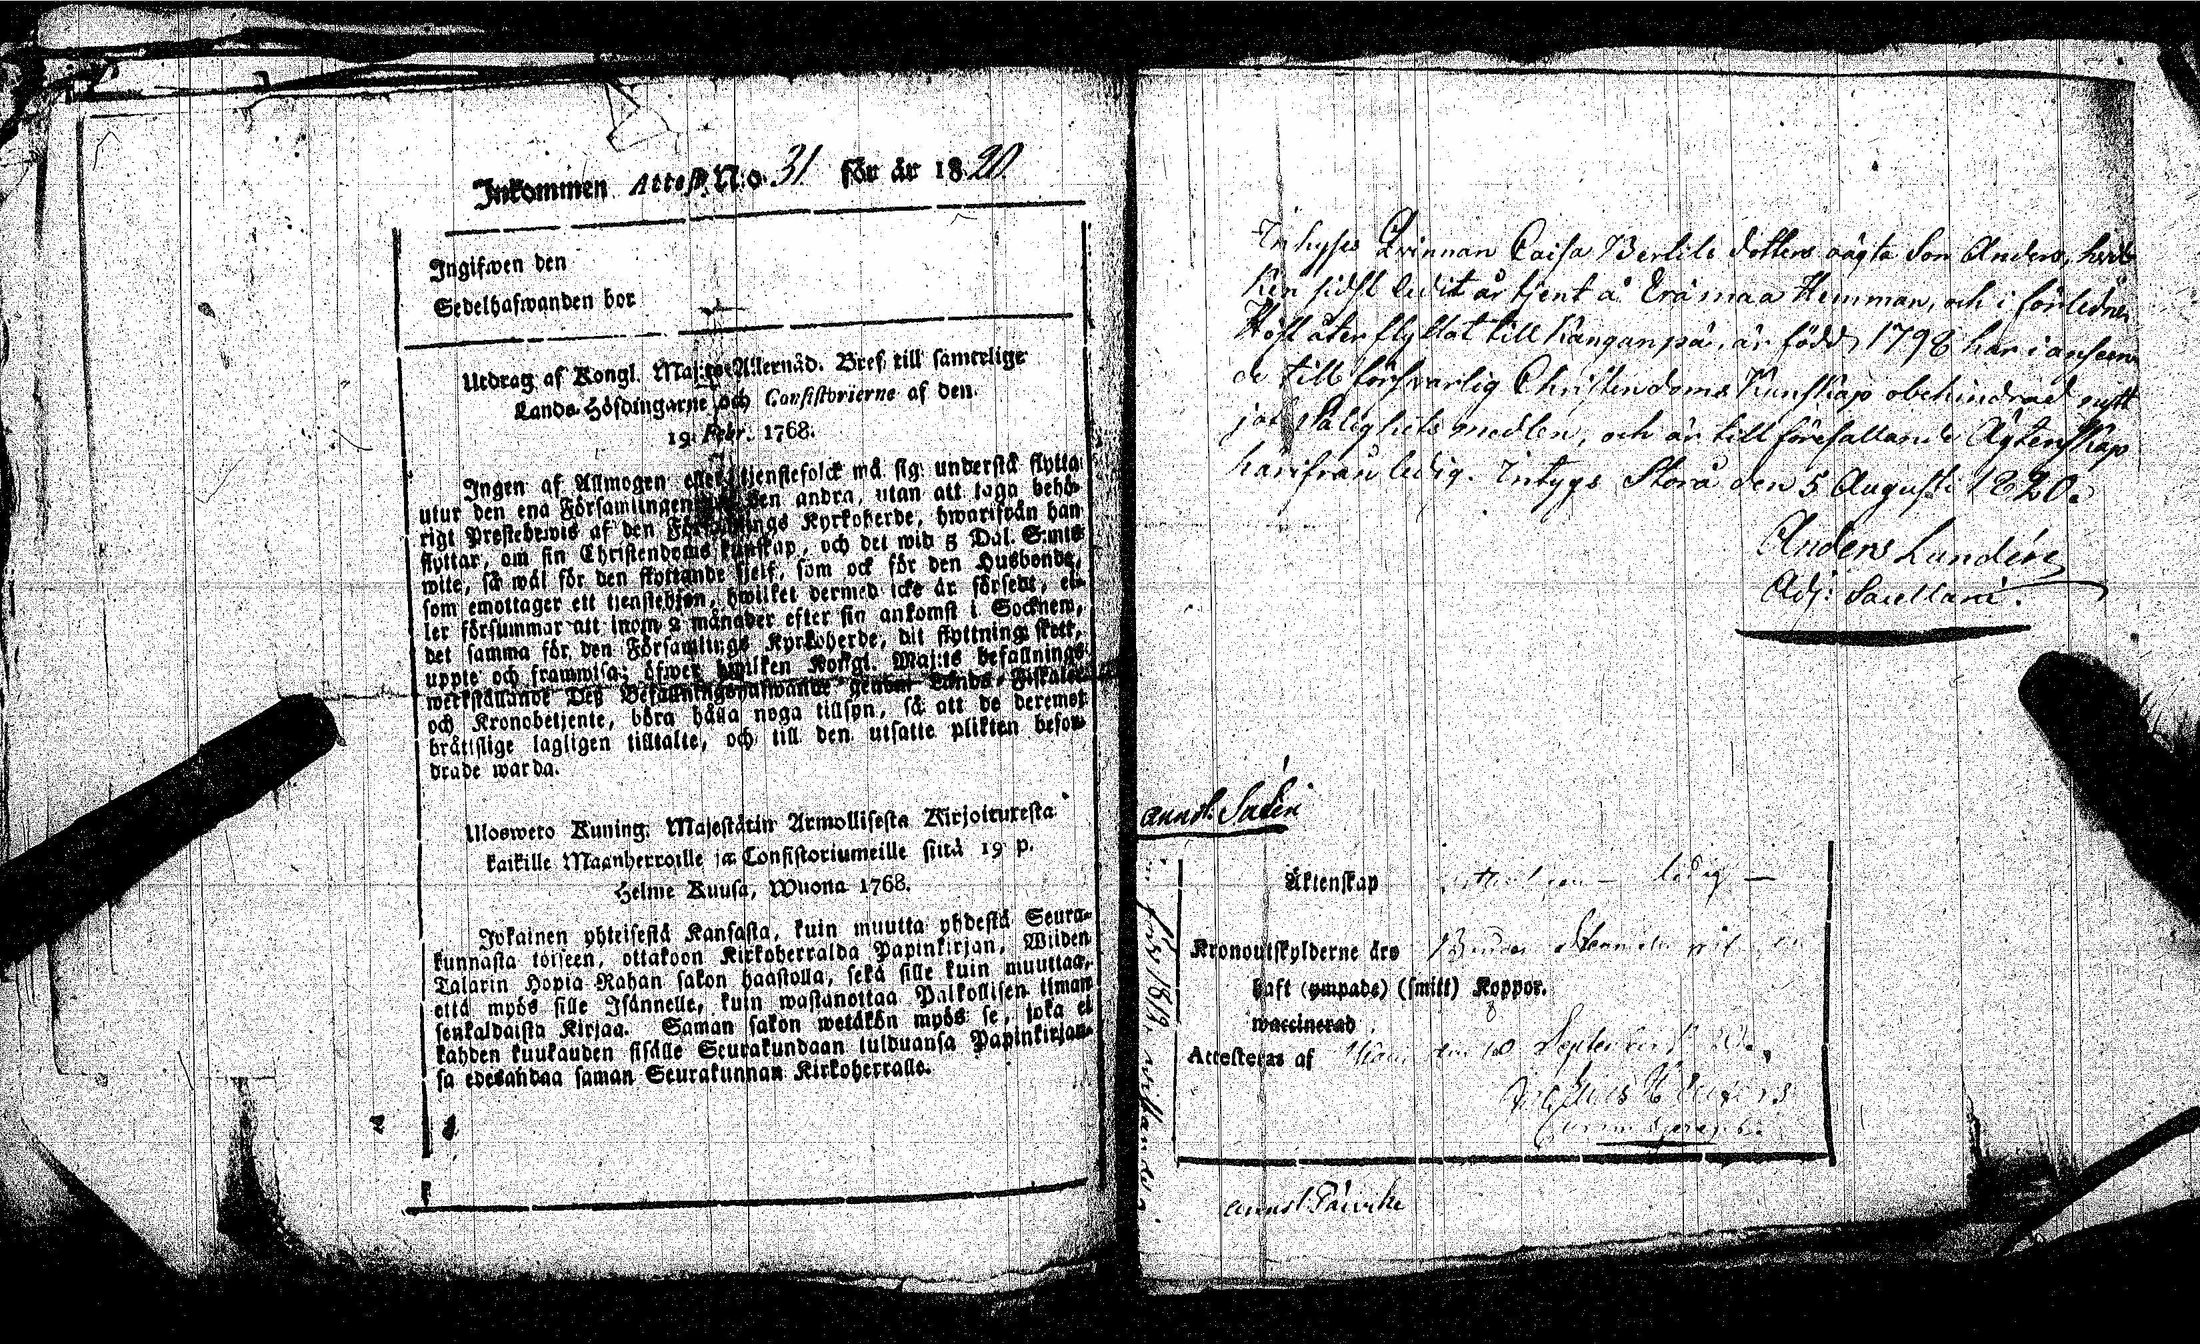 Inkommen Attest. N:o 31 för år 1820
Ingifwen den
Sedelhafwanden bor
Utdrag af Kongl. Maj:ts Allernåd. Bref till samtelige
Lands-Höfdingarne och Consistorierne af den
19 Febr. 1768.
Ingen af Allmogen eller tjenstefolck må sig understå flytta
utur den ena Församlingen den andra, utan att taga behö-
rigt Prestebewis af den Församlings Kyrkoherde, hwarifrån han
flyttar, om sin Christendoms kunskap, och det wid 5 Dal. S:mts
wite, så wäl för den flyttande sjelf, som ock för den Husbonde,
som emottager ett tjenstehjon, hwilket dermed icke är försedt, el-
ler försummar att inom 2 månader efter sin ankomst i Socknen,
det samma för den Församlings Kyrkoherde, dit flyttning skett,
uppte och framwisa; öfwer hwilken Kongl. Maj:ts befallnings
werkställande Deß Befallningshafwande genom Lands-Fiskaler
och Kronobetjente, böra hålla noga tillsyn, så att de deremot
bråttslige lagligen tilltalte, och till den utsatte plikten befor-
drade warda.
Ulosweto Kuning. Majestätin Armollisesta Kirjoituxesta
kaikille Maanherroille ja Consistoriumeille siitä 19 p.
Helme Kuusa, Wuona 1768.
Jokainen yhteisestä Kansasta, kuin muutta yhdestä Seura-
kunnasta toiseen, ottakoon Kirkoherralda Papinkirjan, Wiiden
Talarin Hopia Rahan sakon haastolla, sekä sille kuin muuttaa,
että myös sille Isännelle, kuin wastanottaa Palkollisen ilman
senkaldaista Kirjaa. Saman sakon wetäkön myös se, joka ei
kahden kuukauden sisälle Seurakundaan tulduansa Papinkirjan-
sa edesandaa saman Seurakunnan Kirkoherralle.
Inhyses Qvinnan Caisa Bertils dotters oägta Son Anders, hvil-
ken sidst ledit år tjent å Erämaa Hemman, och i förledne
Höst åter flyttat till Kanganpä, är född 1798 har i anseen-
de till försvarlig Christendoms Kunskap obehindrad nytt-
jat Salighets medlen, och är till förefallande Ägtenskap
härifrån ledig. Intygs Storå den 5 Augusti 1820.
Anders Lundén
Adj: Sacellani.
annot. Sadén
Äktenskap ledig
Kronoutskylderne äro
haft (ympade) (smitt) Koppor.
waccinerad
Attesteras af den 10 September
annot Päivike